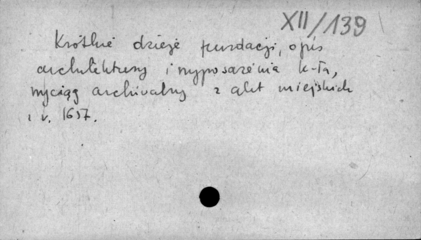 XII/139
Krótkie dzieje fundacji, opis
architektury i wyposażenia k-ła,
wyciąg archiwalny z akt miejskich
z r. 1637.